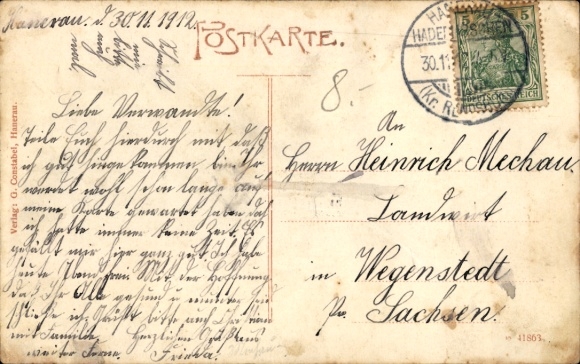 Hanerau. d. 30.11.1912.
POSTKARTE.
HANERAU
HADEMARSCHEN
30.11
(Kr. RENDSBURG)
5 5
DEUTSCHES REICH
8.-
Liebe Verwandte!
Teile Euch hierdurch mit daß
ich gut hier angekommen bin Ihr
werdet wohl schon lange auf
meine Karte gewartet haben doch
ich hatte immer keine Zeit. Es
gefällt mir hier ganz gut. Ich habe
heute
Mit der Hoffnung
daß Ihr Alle gesund u. munter
schließe ich. Grüßt bitte auch
mit Familie. Herzlichen Gruß aus
weiter Ferne. Frieda.
An
Herrn Heinrich Mechau.
Landwirt
in Wegenstedt
Pr. Sachsen.
Verlag: G. Constabel, Hanerau.
41863